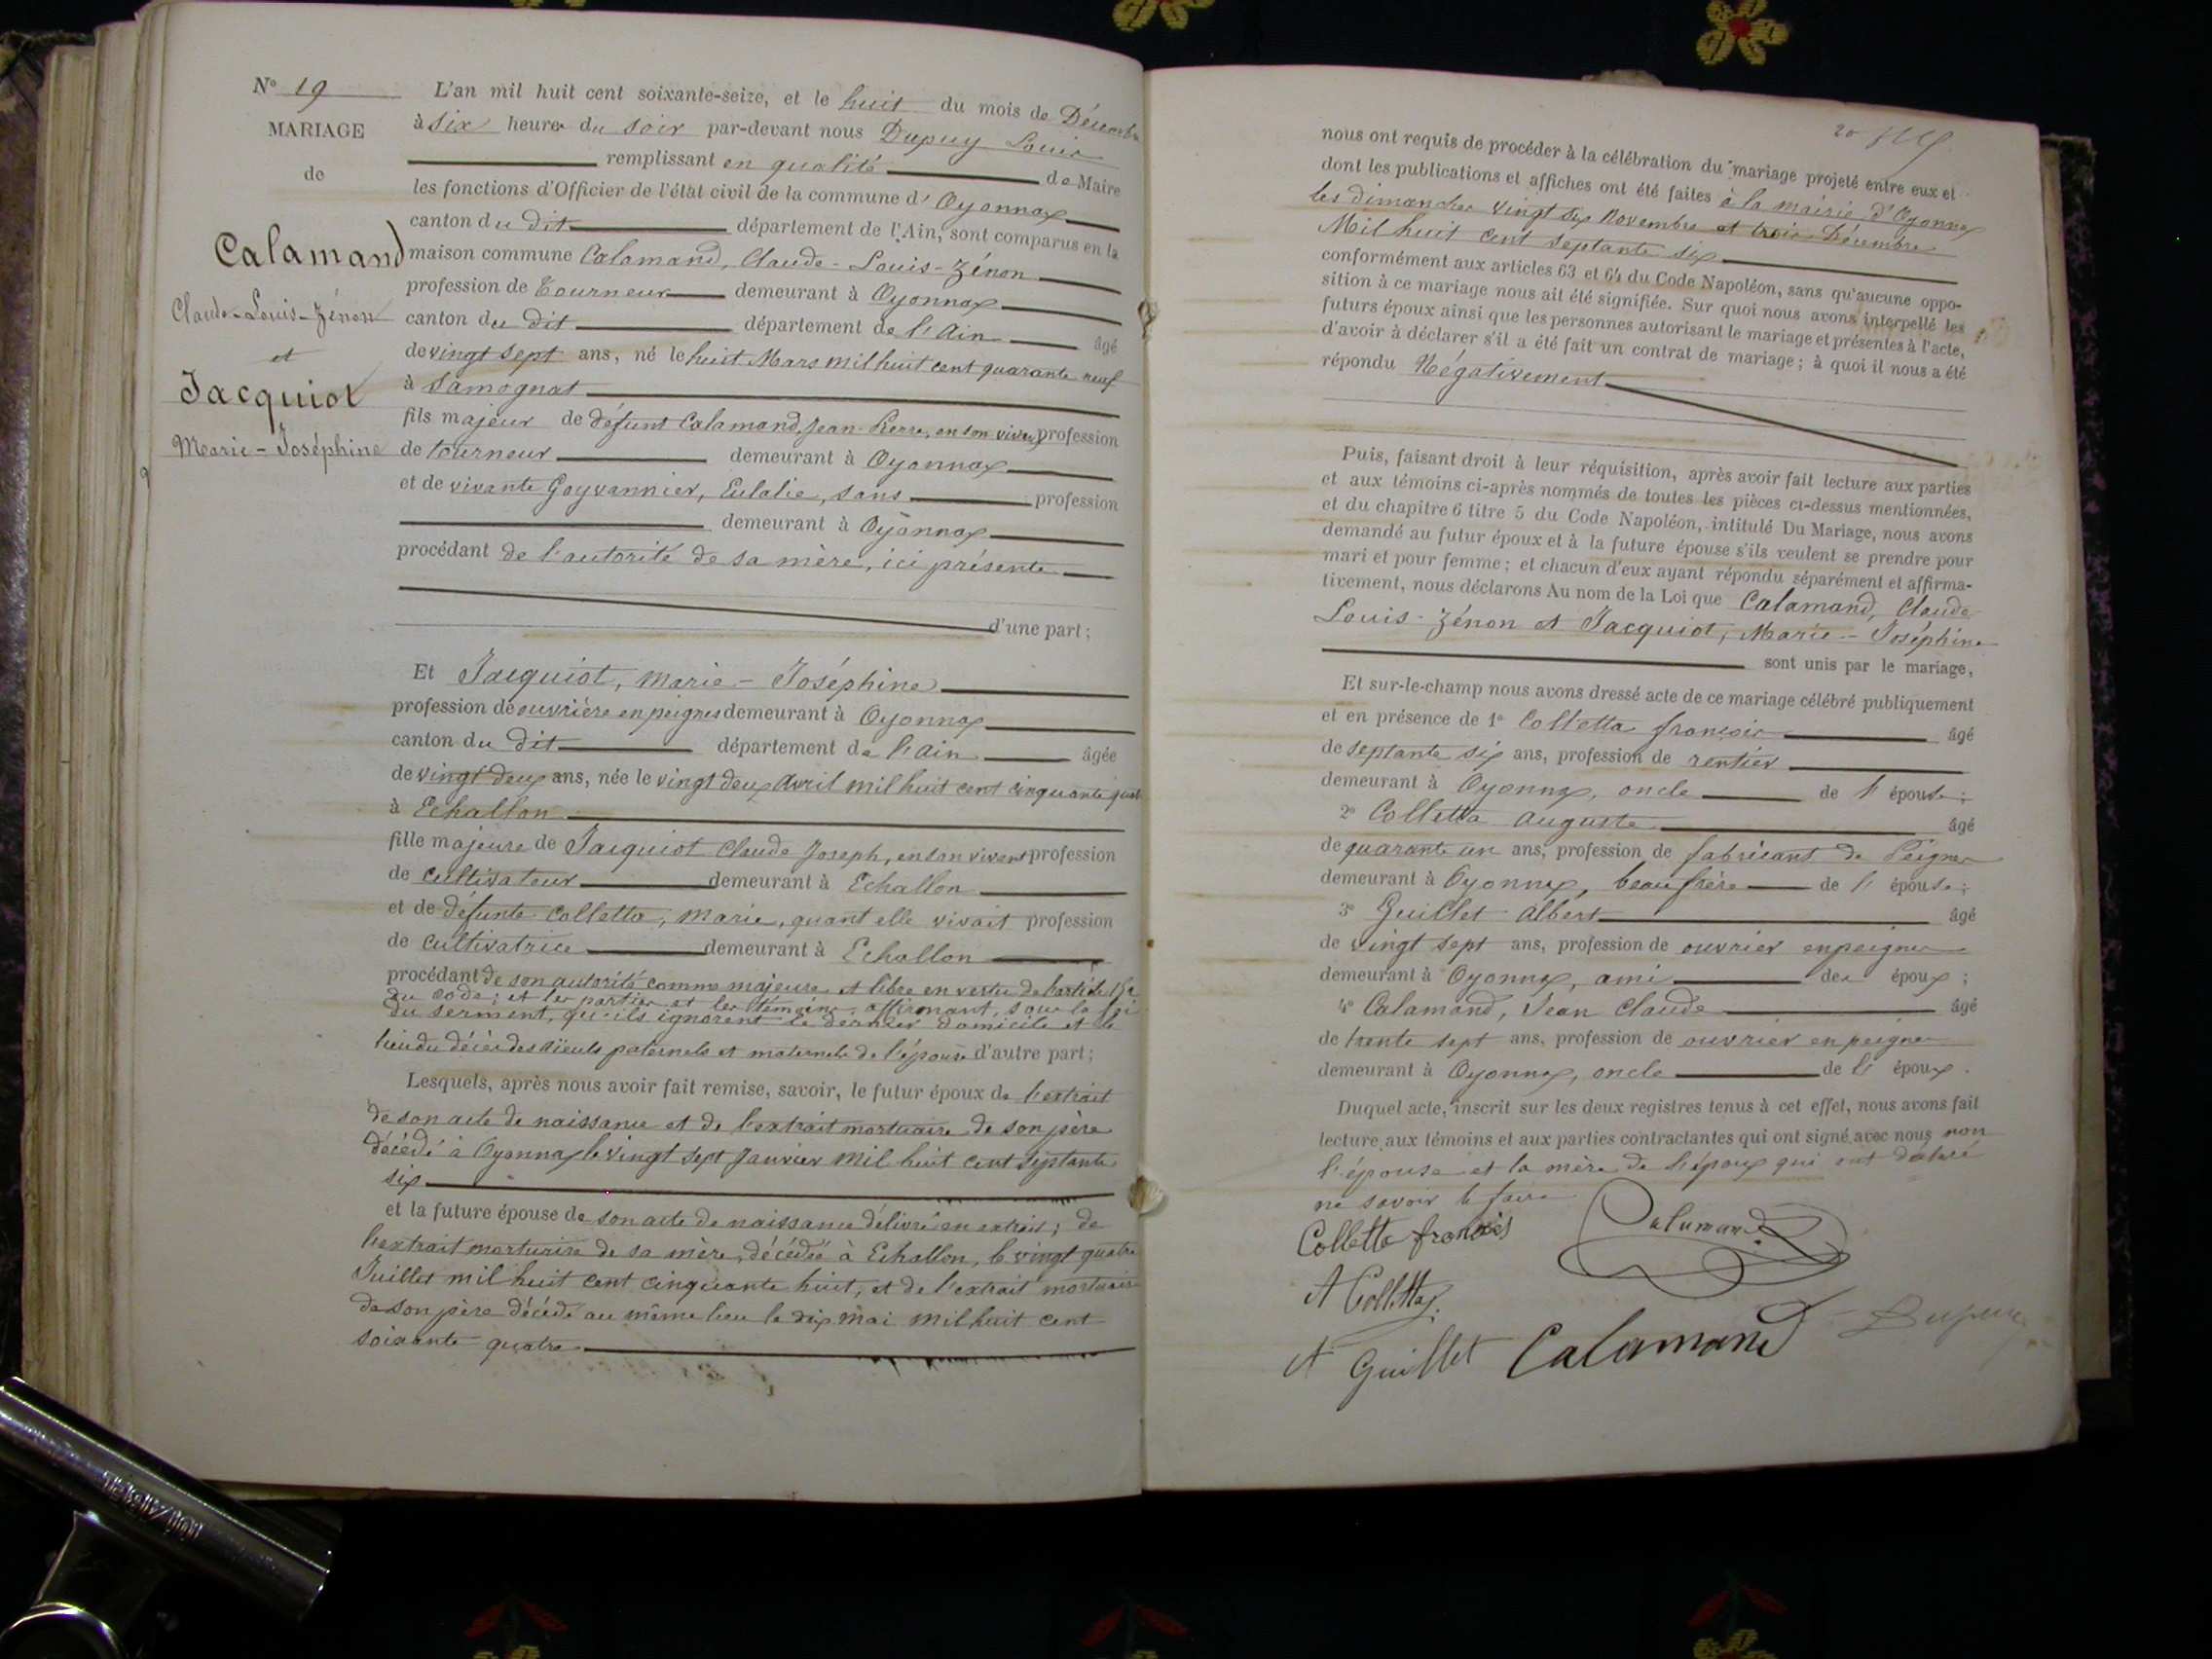 N° 19
MARIAGE
de
Calamand
Claude-Louis-Zénon
et
Jacquiot
Marie-Joséphine
L'an mil huit cent soixante-seize, et le huit du mois de Décembre
à six heures du soir par-devant nous Dupuy Louis
remplissant en qualité de Maire
les fonctions d'Officier de l'état civil de la commune d'Oyonnax
canton du dit département de l'Ain, sont comparus en la
maison commune Calamand, Claude-Louis-Zénon
profession de Tourneur demeurant à Oyonnax
canton du dit département de l'Ain âgé
de vingt sept ans, né le huit Mars mil huit cent quarante neuf
à Samognat
fils majeur de défunt Calamand, Jean-Pierre, en son vivant profession
de tourneur demeurant à Oyonnax
et de vivante Goyvannier, Eulalie, sans profession
demeurant à Oyonnax
procédant de l'autorité de sa mère, ici présente
d'une part;
Et Jacquiot, Marie-Joséphine
profession de ouvrière en peignes demeurant à Oyonnax
canton du dit département de l'Ain âgée
de vingt deux ans, née le vingt deux Avril mil huit cent cinquante quatre
à Echallon
fille majeure de Jacquiot Claude Joseph, en son vivant profession
de cultivateur demeurant à Echallon
et de défunte Colletta, Marie, quant elle vivait profession
de cultivatrice demeurant à Echallon
procédant de son autorité comme majeure et libre en vertu de l'article
du code; et les parties et les témoins affirmant, sous la foi
du serment, qu'ils ignorent le dernier domicile et le
lieu du décès des aïeuls paternels et maternels de l'épouse d'autre part;
Lesquels, après nous avoir fait remise, savoir, le futur époux de l'extrait
de son acte de naissance et de l'extrait mortuaire de son père
décédé à Oyonnax le vingt sept Janvier mil huit cent septante
six
et la future épouse de son acte de naissance délivré en extrait; de
l'extrait mortuaire de sa mère, décédée à Echallon, le vingt quatre
Juillet mil huit cent cinquante huit, et de l'extrait mortuaire
de son père décédé au même lieu le dix Mai mil huit cent
soixante quatre
20
nous ont requis de procéder à la célébration du mariage projeté entre eux et
dont les publications et affiches ont été faites à la mairie d'Oyonnax
les dimanches vingt six Novembre et trois Décembre
Mil huit cent septante six
conformément aux articles 63 et 64 du Code Napoléon, sans qu'aucune oppo-
sition à ce mariage nous ait été signifiée. Sur quoi nous avons interpellé les
futurs époux ainsi que les personnes autorisant le mariage et présentes à l'acte,
d'avoir à déclarer s'il a été fait un contrat de mariage; à quoi il nous a été
répondu Négativement
Puis, faisant droit à leur réquisition, après avoir fait lecture aux parties
et aux témoins ci-après nommés de toutes les pièces ci-dessus mentionnées,
et du chapitre 6 titre 5 du Code Napoléon, intitulé Du Mariage, nous avons
demandé au futur époux et à la future épouse s'ils veulent se prendre pour
mari et pour femme; et chacun d'eux ayant répondu séparément et affirma-
tivement, nous déclarons Au nom de la Loi que Calamand, Claude
Louis-Zénon et Jacquiot, Marie-Joséphine
sont unis par le mariage,
Et sur-le-champ nous avons dressé acte de ce mariage célébré publiquement
et en présence de 1° Colletta françois âgé
de septante six ans, profession de rentier
demeurant à Oyonnax, oncle de l'épouse;
2° Colletta Auguste âgé
de quarante un ans, profession de fabricant de Peignes
demeurant à Oyonnax, beau frère de l'épouse;
3° Guillet Albert âgé
de vingt sept ans, profession de ouvrier en peignes
demeurant à Oyonnax, ami des époux;
4° Calamand, Jean Claude âgé
de trente sept ans, profession de ouvrier en peignes
demeurant à Oyonnax, oncle de l'époux.
Duquel acte, inscrit sur les deux registres tenus à cet effet, nous avons fait
lecture aux témoins et aux parties contractantes qui ont signé avec nous non
l'épouse et la mère de l'époux qui ont déclaré
ne savoir le faire
Colletta françois
Calamand
A Colletta
Dupuy
A Guillet Calamand